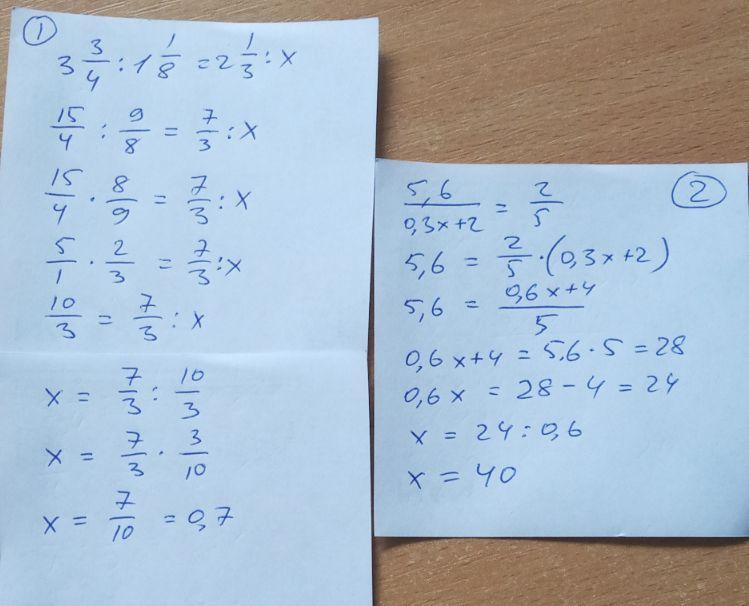 1
3 3/4 : 1 1/8 = 2 1/3 : x
15/4 : 9/8 = 7/3 : x
15/4 · 8/9 = 7/3 : x
5/1 · 2/3 = 7/3 : x
10/3 = 7/3 : x
x = 7/3 : 10/3
x = 7/3 · 3/10
x = 7/10 = 0,7
2
5,6/0,3x+2 = 2/5
5,6 = 2/5 · (0,3x+2)
5,6 = 0,6x+4/5
0,6x+4 = 5,6 · 5 = 28
0,6x = 28 - 4 = 24
x = 24 : 0,6
x = 40